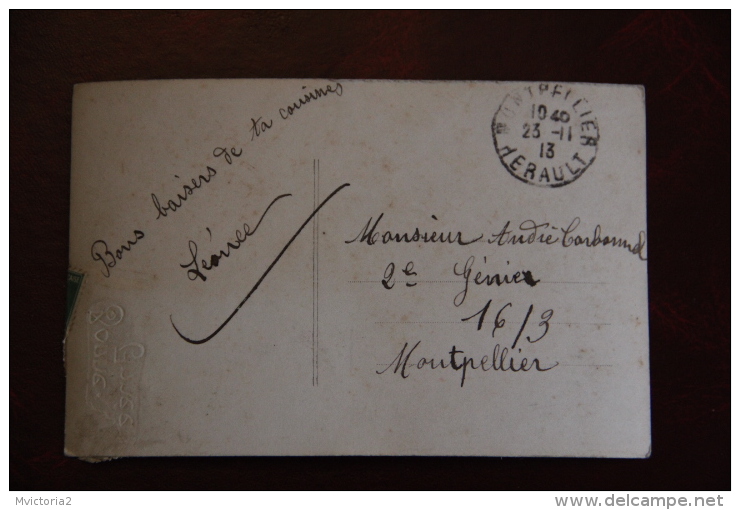 Bons baisers de ta cousine
Léonce
MONTPELLIER
10 40
23 -11
13
HERAULT
Monsieur André Carbonnel
2e Génie
16/3
Montpellier
Mvictoria2
delcampe.net